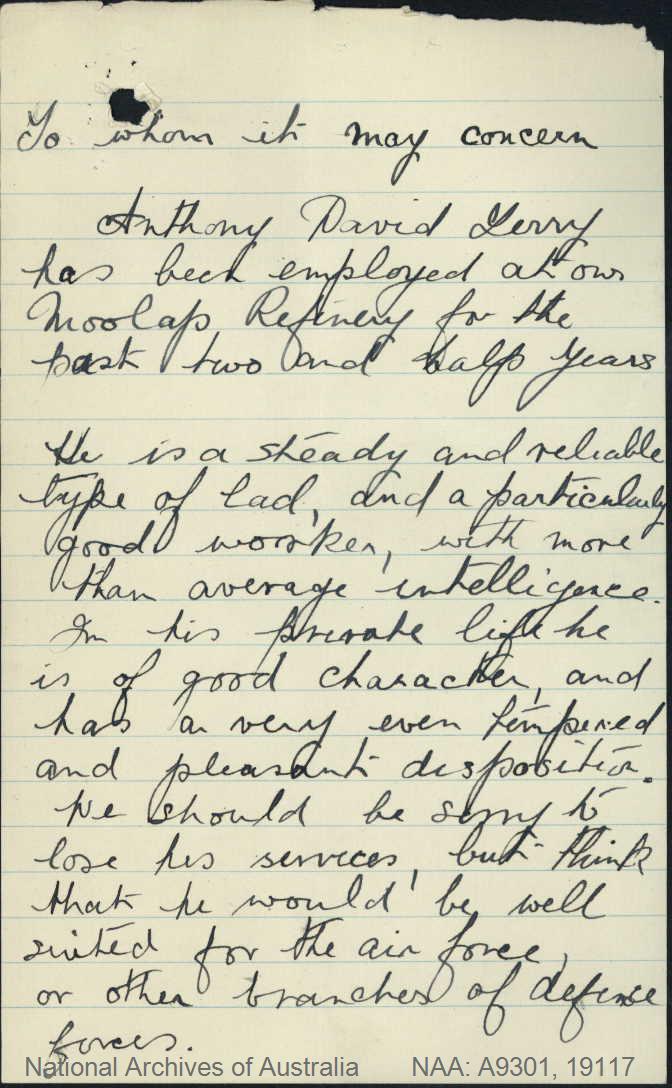 To whom it may concern
Anthony David Terry
has been employed at our
Moolap Refinery for the
past two and half years
He is a steady and reliable
type of lad, and a particularly
good worker, with more
than average intelligence.
In his private life he
is of good character, and
has a very even tempered
and pleasant disposition.
We should be sorry to
lose his services, but think
that he would be well
suited for the air force,
or other branches of defense
forces.
National Archives of Australia NAA: A9301, 19117